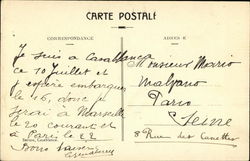 CARTE POSTALE
CORRESPONDANCE
ADRESSE
Je suis a Casablanca
ce 10 juillet et
j'espère embarquer
le 15, donc je
serai à Marseille
le 20 courant et
à Paris le 22
Bons baisers
Monsieur Mario
Paris
Seine
8 Rue des Canettes